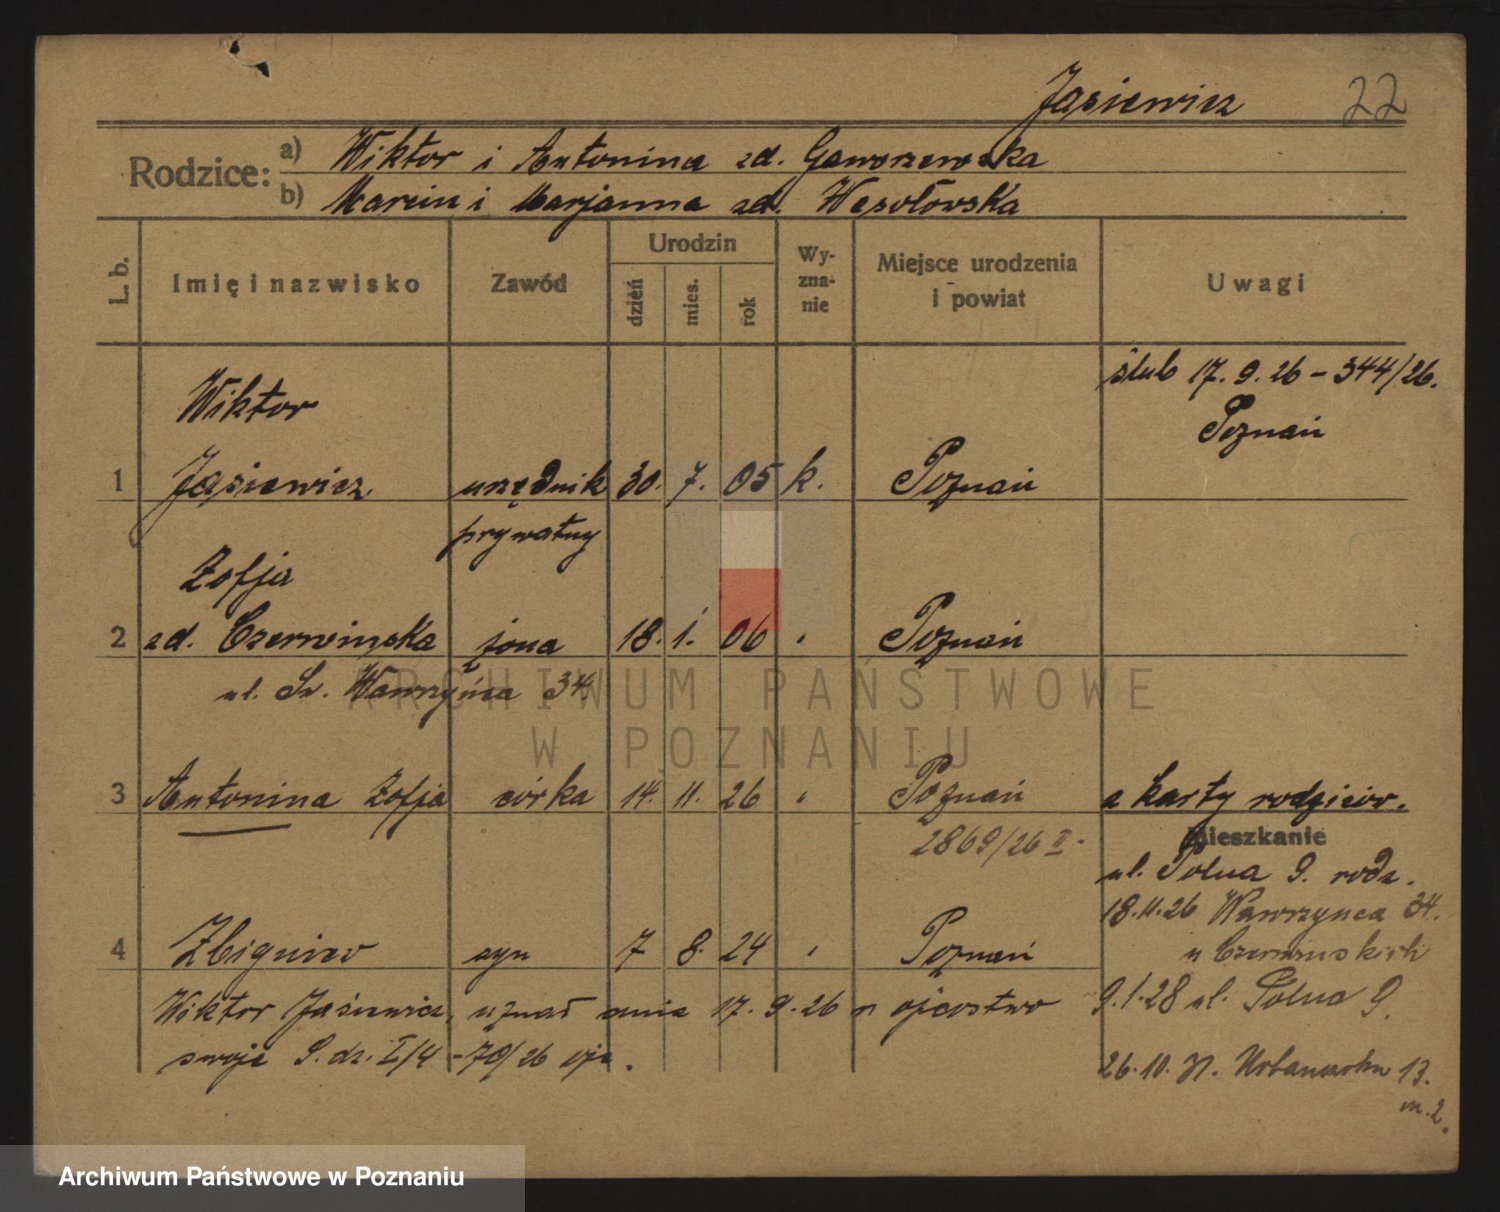 Jąsiewicz 22
Rodzice: a) Wiktor i Antonina zd. Gaworzewska
b) Marcin i Marjanna zd. Węsołowska
L. b. Imię i nazwisko Zawód Urodzin dzień mies. rok Wyznanie Miejsce urodzenia i powiat Uwagi
ślub 17. 9. 26 - 344/26.
Wiktor Poznań
1 Jąsiewicz urzędnik 30. 7. 05 k. Poznań
prywatny
Zofja
2 zd. Czerwińska żona 18. 1. 06 " Poznań
ul. Św. Wawrzyńca 34.
ARCHIWUM PAŃSTWOWE
W POZNANIU
3 Antonina Zofja córka 14. 11. 26 " Poznań z karty rodziców.
2869/26 II - Mieszkanie
ul. Polna 9. rodz.
18.11.26 Wawrzyńca 34.
4 Zbigniew syn 7 8. 24 " Poznań u Czerwińskich
Wiktor Jąsiewicz uznał dnia 17. 9. 26 r ojcostwo 9.1.28 ul. Polna 9.
swoje L. dz. I/4 - 70/26
26.10. 13.
m. 2.
Archiwum Państwowe w Poznaniu